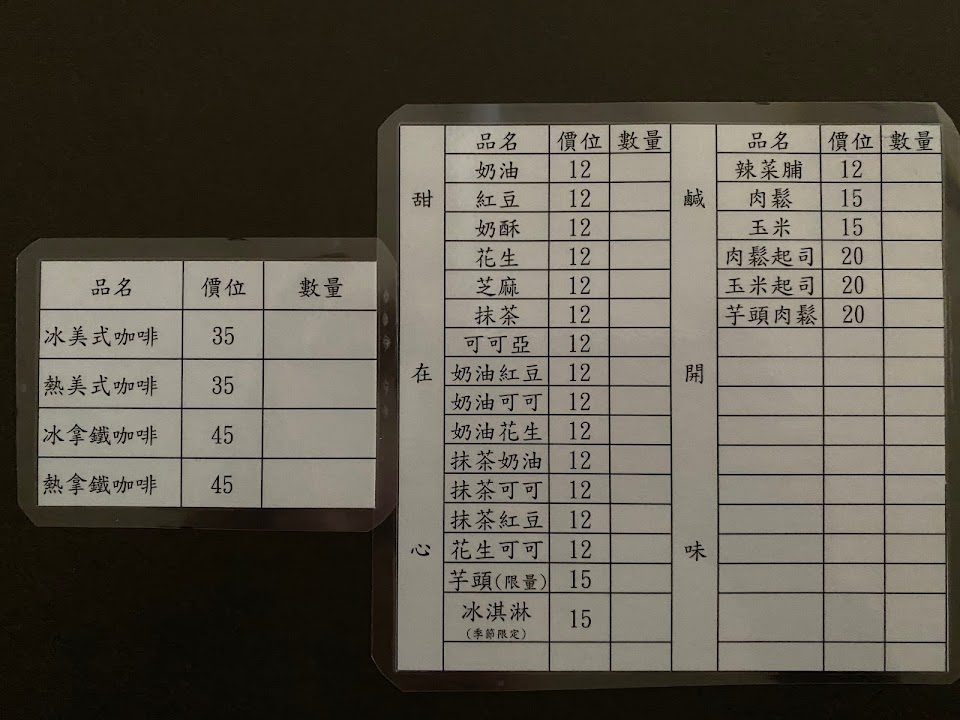 品名 價位 數量
冰美式咖啡 35
熱美式咖啡 35
冰拿鐵咖啡 45
熱拿鐵咖啡 45
甜在心
品名 價位 數量
奶油 12
紅豆 12
奶酥 12
花生 12
芝麻 12
抹茶 12
可可亞 12
奶油紅豆 12
奶油可可 12
奶油花生 12
抹茶奶油 12
抹茶可可 12
抹茶紅豆 12
花生可可 12
芋頭(限量) 15
冰淇淋 15
(季節限定)
鹹開味
品名 價位 數量
辣菜脯 12
肉鬆 15
玉米 15
肉鬆起司 20
玉米起司 20
芋頭肉鬆 20